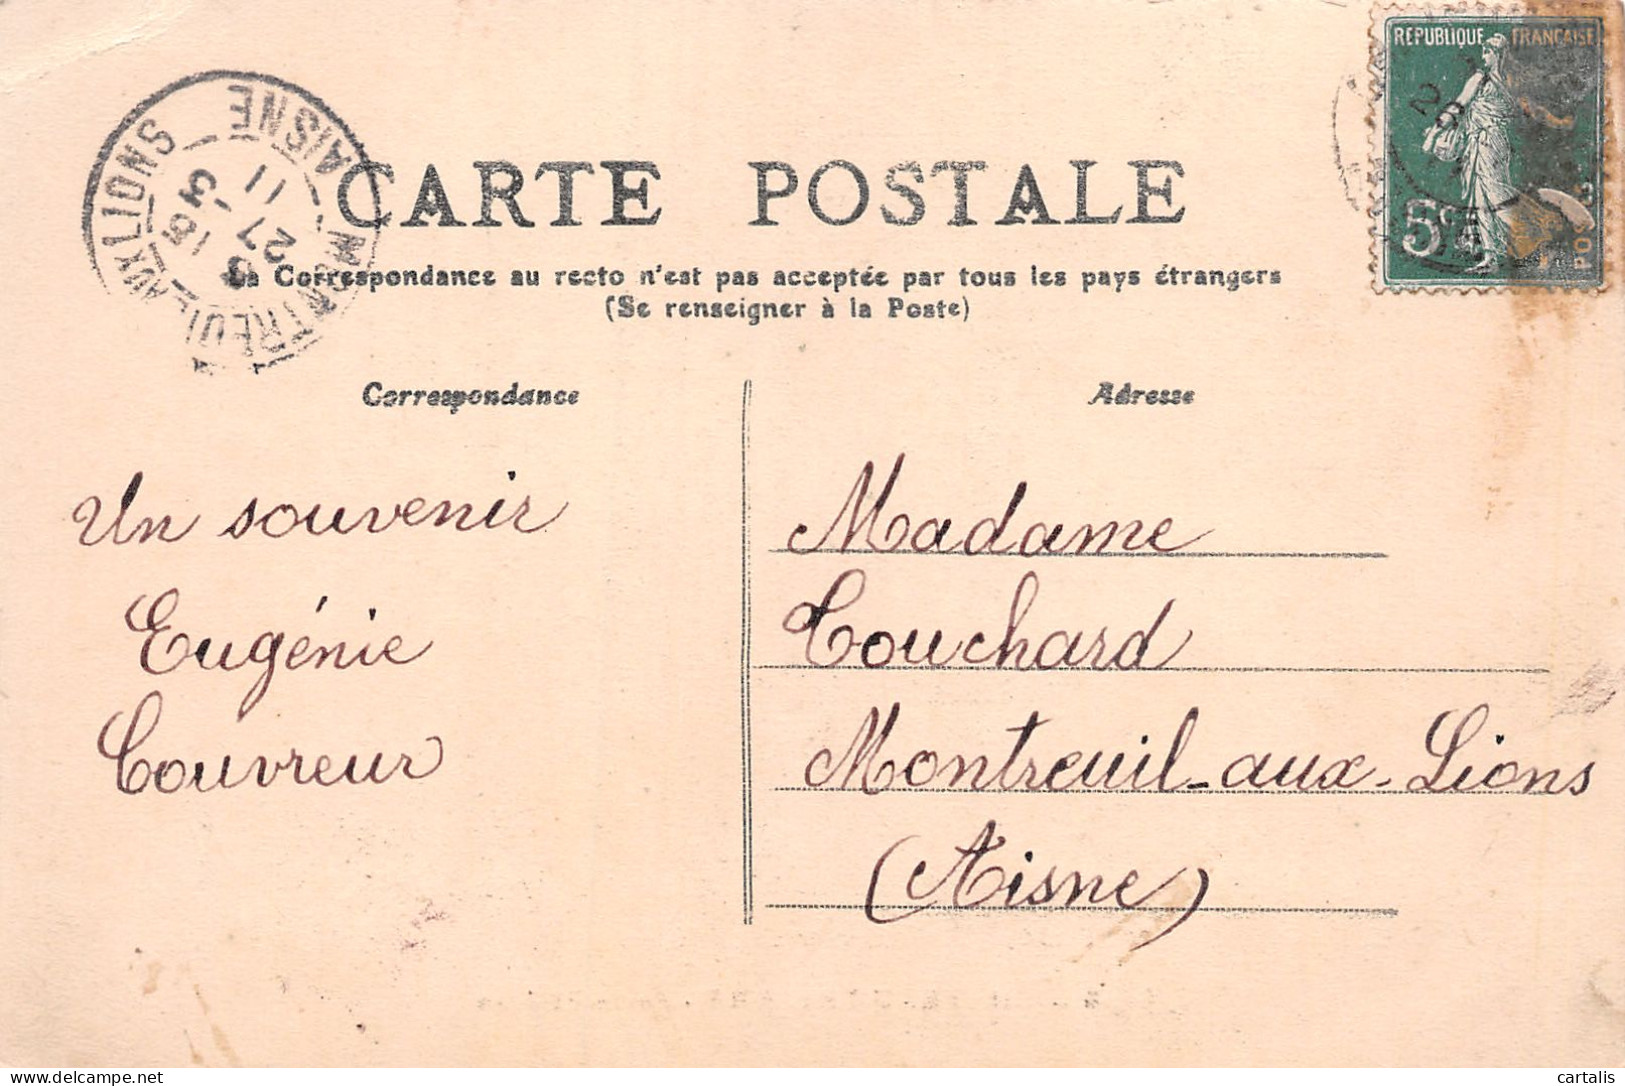 CARTE POSTALE
La Correspondance au recto n'est pas acceptée par tous les pays étrangers
(Se renseigner à la Poste)
Correspondance
Adresse
Un souvenir
Eugénie
Couvreur
Madame
Couchard
Montreuil-aux-Lions
(Aisne)
REPUBLIQUE FRANÇAISE
5c
POSTES
MONTREUIL-AUX LIONS
AISNE
27
11
cartalis
delcampe.net